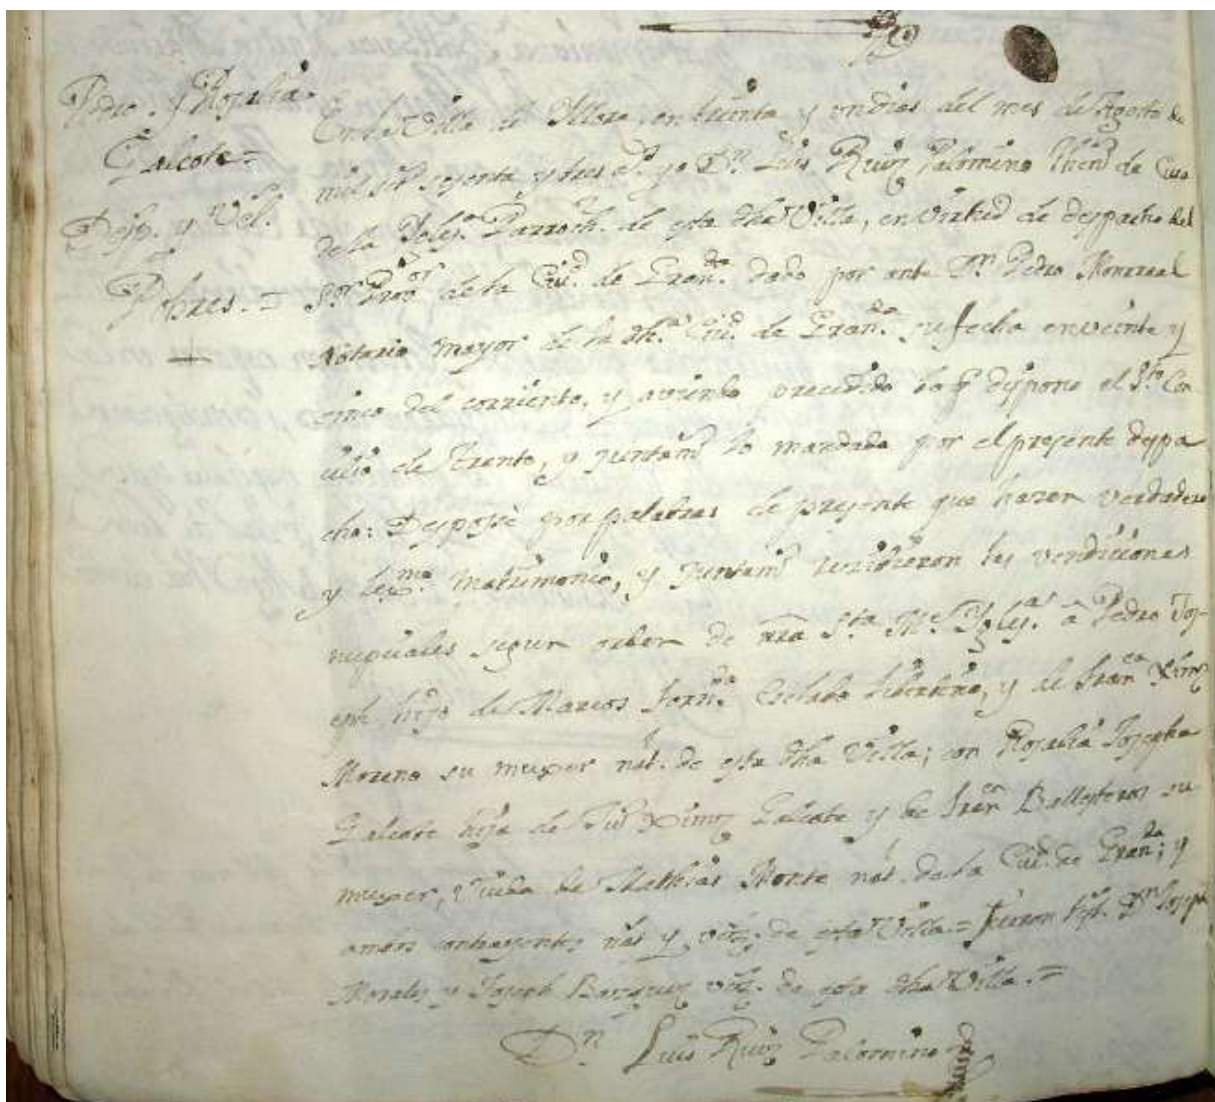 Pedro. y Rosalia
Galcote =
Desp. y Vel.
Pobres. =
En la Villa de Yllora en treinta y un dias del mes de Agosto de
mil set.s sesenta y tres a.s yo D.n Luis Ruiz Palomino Then.te de Cura
de la Yglesi.a Parroch.l de esta dha Villa, en virtud de despacho del
S.or Prov.or de la Ciu.d de Gran.da dado por ante D.n Pedro Monrreal
Notario mayor de la dh.a Ciu.d de Gran.da su fecha en veinte y
cinco del corriente, y aviendo precedido lo q.e dispone el S.to Con
cilio de Trento, y juntam.te lo mandado por el presente despa
cho: Desposè por palabras de presente que hazen verdadero
y lex.mo matrimonio, y juntam.te rezivieron las vendiciones
nupciales segun orden de nra S.ta M.e Yglesi.a à Pedro Jos-
eph hijo de Marcos y de Fran.ca Xim.z
Moreno su muxer nat. de esta dha Villa; con Rosalia Josepha
Galcote hija de Xim.z Galcote y de Fran.ca Ballesteros su
muxer, Viuda de Mathias nat. de la Ciu.d de Gran.da; y
ambos contrayentes nat y vez.s de esta Villa = fueron test. D.n Joseph
Morales y Joseph vez. de esta dha Villa. =
D.n Luis Ruiz Palomino